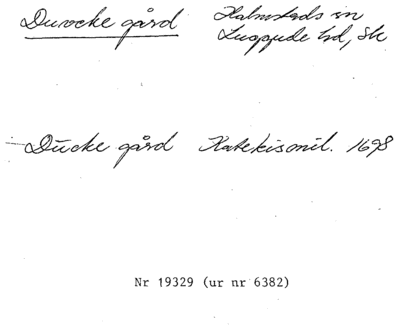 Duvocke gård Halmstads sn
Luggude hd, Sk
Dücke gård Katekismil. 1698
Nr 19329 (ur nr 6382)